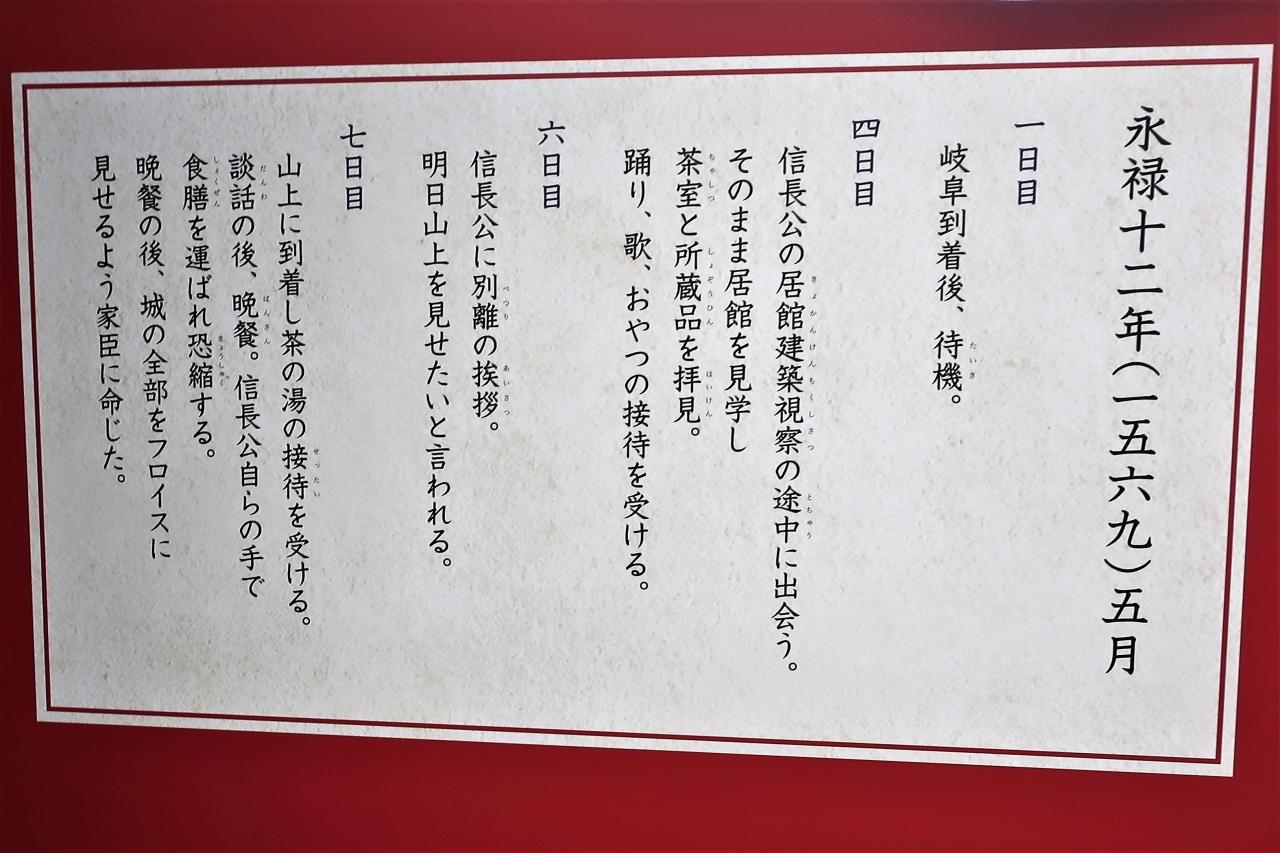 永禄十二年（一五六九）五月
一日目
岐阜到着後、待機。
四日目
信長公の居館建築視察の途中に出会う。
そのまま居館を見学し
茶室と所蔵品を拝見。
踊り、歌、おやつの接待を受ける。
六日目
信長公に別離の挨拶。
明日山上を見せたいと言われる。
七日目
山上に到着し茶の湯の接待を受ける。
談話の後、晩餐。信長公自らの手で
食膳を運ばれ恐縮する。
晩餐の後、城の全部をフロイスに
見せるよう家臣に命じた。